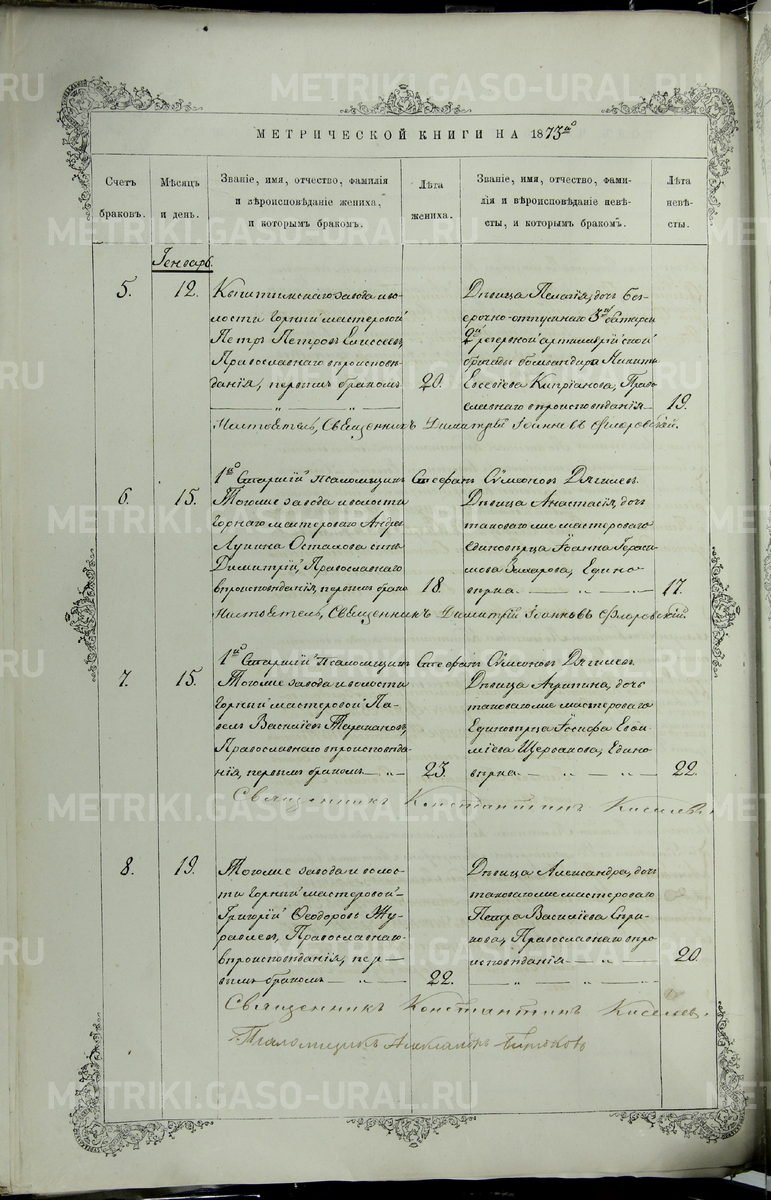 METRIKI.GASO-URAL.RU
МЕТРИЧЕСКОЙ КНИГИ НА 1873й
Счетъ браковъ.
Мѣсяцъ и день.
Званіе, имя, отчество, фамилія и вѣроисповѣданіе жениха, и которымъ бракомъ.
Лѣта жениха.
Званіе, имя, отчество, фамилія и вѣроисповѣданіе невѣсты, и которымъ бракомъ.
Лѣта невѣсты.
Генварь.
5.
12.
завода и во-
лости горный мастеровой
Петръ Петровъ Елисеевъ,
Православнаго вѣроисповѣ-
данія, первымъ бракомъ
20.
Дѣвица Пелагія, дочь без-
срочно-отпускнаго 3й батареи
2й резервной артиллерійской
бригады бомбандира Никиты
Евсевіева Кипріанова, Право-
славнаго вѣроисповѣданія
19.
Настоятель, Священникъ Димитрій Іоанновъ Флоровскій.
1й Старшій Псаломщикъ Стефанъ Сѵмеоновъ Дягилевъ
6.
15.
Тогоже завода и волости
горнаго мастероваго Андрея
Лупина Осталова сынъ
Димитрій, Православнаго
вѣроисповѣданія, первымъ брако
18.
Дѣвица Анастасія, дочь
таковагоже мастероваго
Единовѣрца Іоанна Гераси-
мова Захарова, Едино-
вѣрка.
17.
Настоятель, Священникъ Димитрій Іоанновъ Флоровскій.
1й Старшій Псаломщикъ Стефанъ Сѵмеоновъ Дягилевъ
7.
15.
Тогоже завода и волости
горный мастеровой Па-
велъ Василіевъ Таракановъ,
Православнаго вѣроисповѣда-
нія, первымъ бракомъ
23.
Дѣвица Агрипина, дочь
таковагоже мастероваго
Единовѣрца Іосифа Евѳи-
міева Щербакова, Едино-
вѣрка.
22.
Священникъ Константинъ Киселевъ.
8.
19.
Тогоже завода и волос-
ти горный мастеровой
Григорій Ѳеодоровъ Жу-
равлевъ, Православнаго
вѣроисповѣданія, пер-
вымъ бракомъ
22.
Дѣвица Александра, дочь
таковагоже мастероваго
Петра Василіева
Православнаго вѣро-
исповѣданія
20.
Священникъ Константинъ Киселевъ.
Псаломщикъ Александръ Бирюковъ